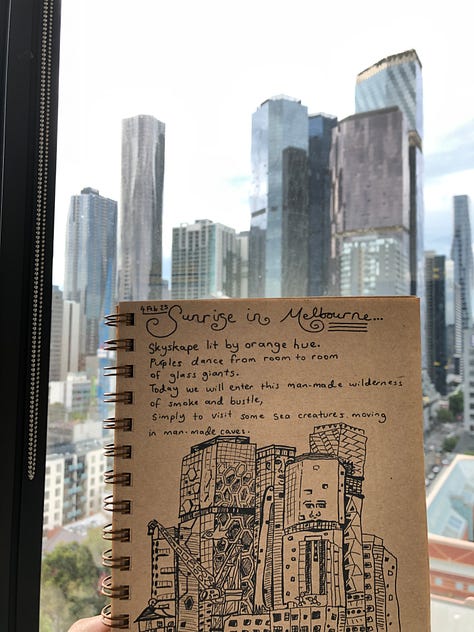 4 Feb 23
Sunrise in Melbourne...
Skyskape lit by orange hue.
Puples dance from room to room
of glass giants.
Today we will enter this man-made wilderness
of smoke and bustle,
Simply to visit some sea creatures moving
in man-made caves.